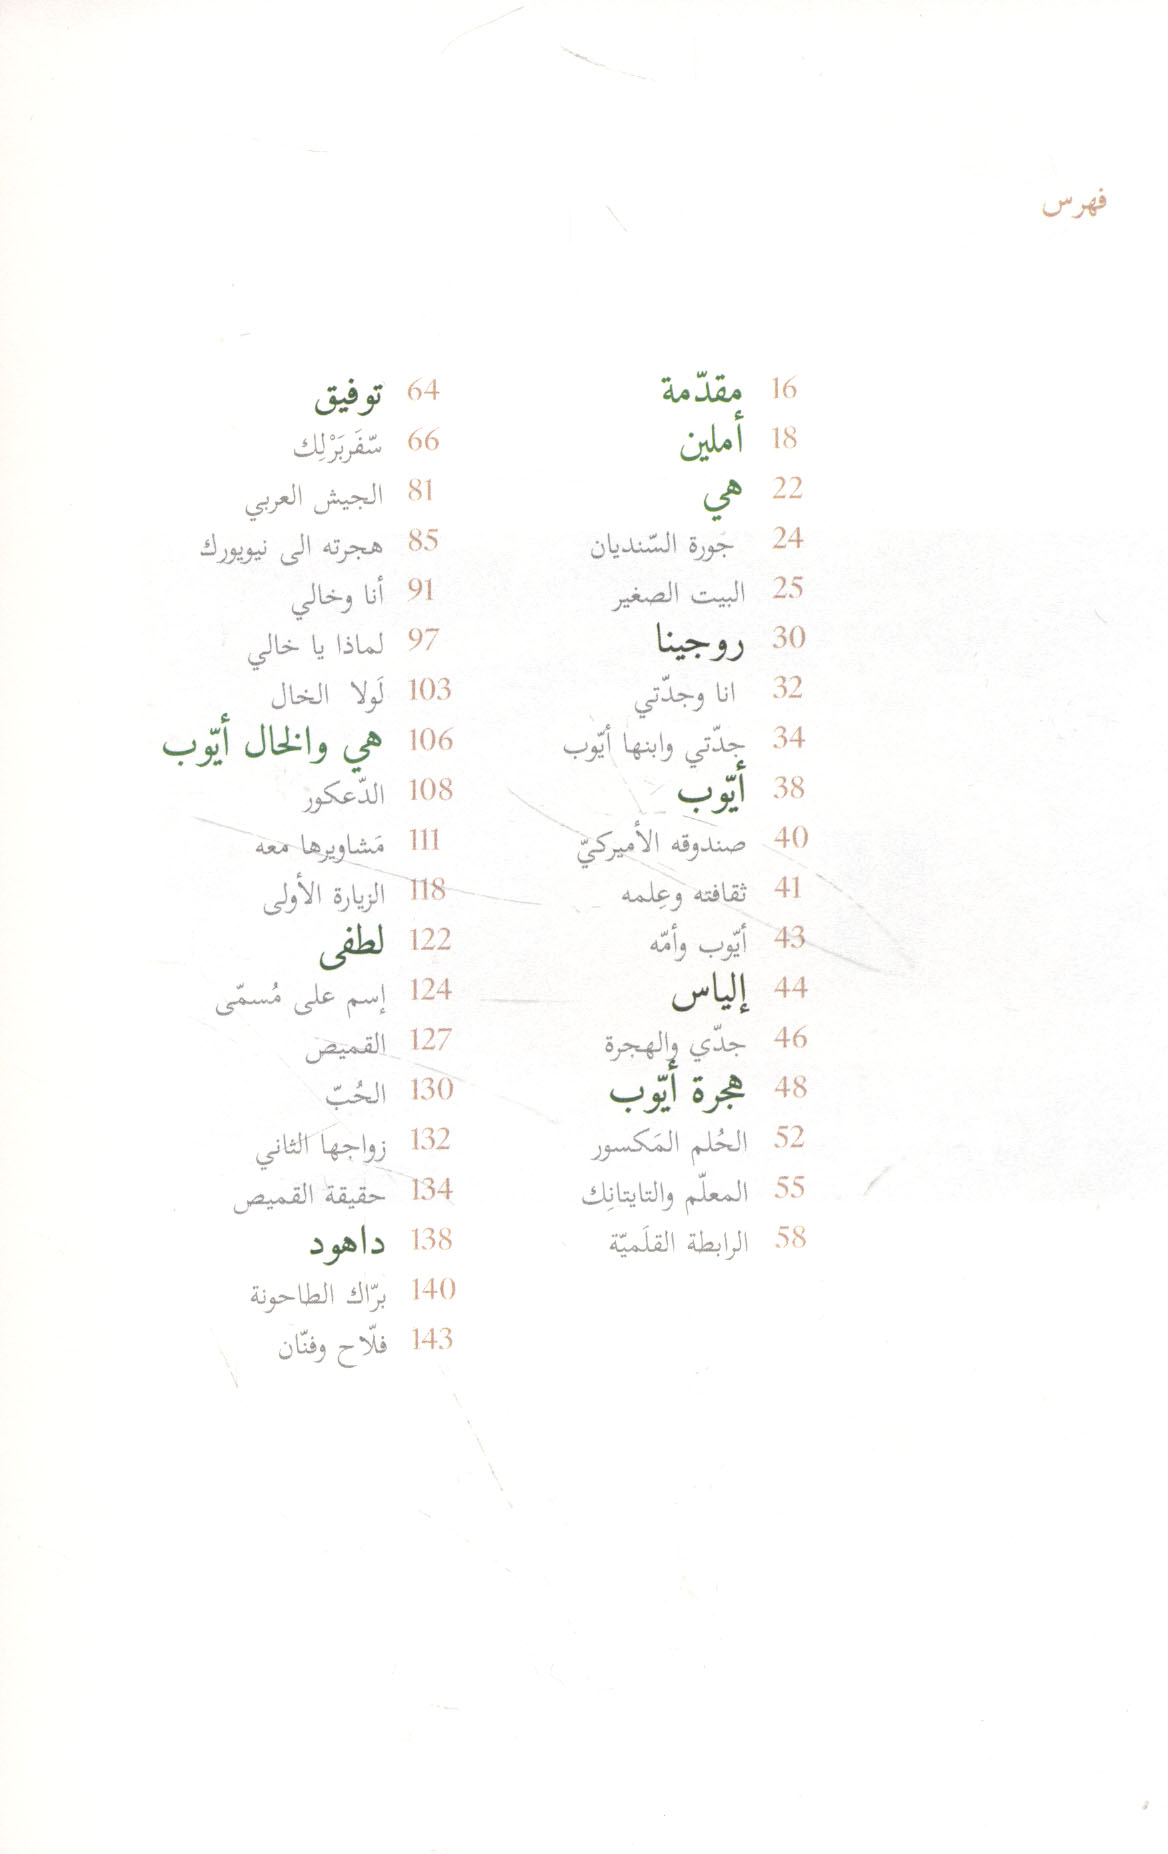 فهرس
16 مقدّمة
18 أملين
22 هي
24 جَورة السّنديان
25 البيت الصغير
30 روجينا
32 انا وجدّتي
34 جدّتي وابنها أيّوب
38 أيّوب
40 صندوقه الأميركيّ
41 ثقافته وعِلمه
43 أيّوب وأمّه
44 إلياس
46 جدّي والهجرة
48 هجرة أيّوب
52 الحُلم المَكسور
55 المعلّم والتايتانِك
58 الرابطة القلَميّة
64 توفيق
66 سّفَربَرْلِك
81 الجيش العربي
85 هجرته الى نيويورك
91 أنا وخالي
97 لماذا يا خالي
103 لَولا الخال
106 هي والخال أيّوب
108 الدّعكور
111 مَشاويرها معه
118 الزيارة الأولى
122 لطفى
124 إسم على مُسمّى
127 القميص
130 الحُبّ
132 زواجها الثاني
134 حقيقة القميص
138 داهود
140 برّاك الطاحونة
143 فلّاح وفنّان